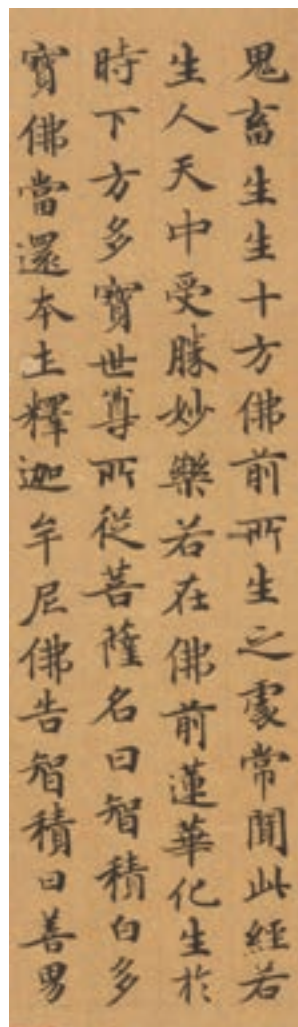 鬼畜生生十方佛前所生之處常聞此經若
生人天中受勝妙樂若在佛前蓮華化生於
時下方多寶世尊所從菩薩名曰智積白多
寶佛當還本土釋迦牟尼佛告智積曰善男